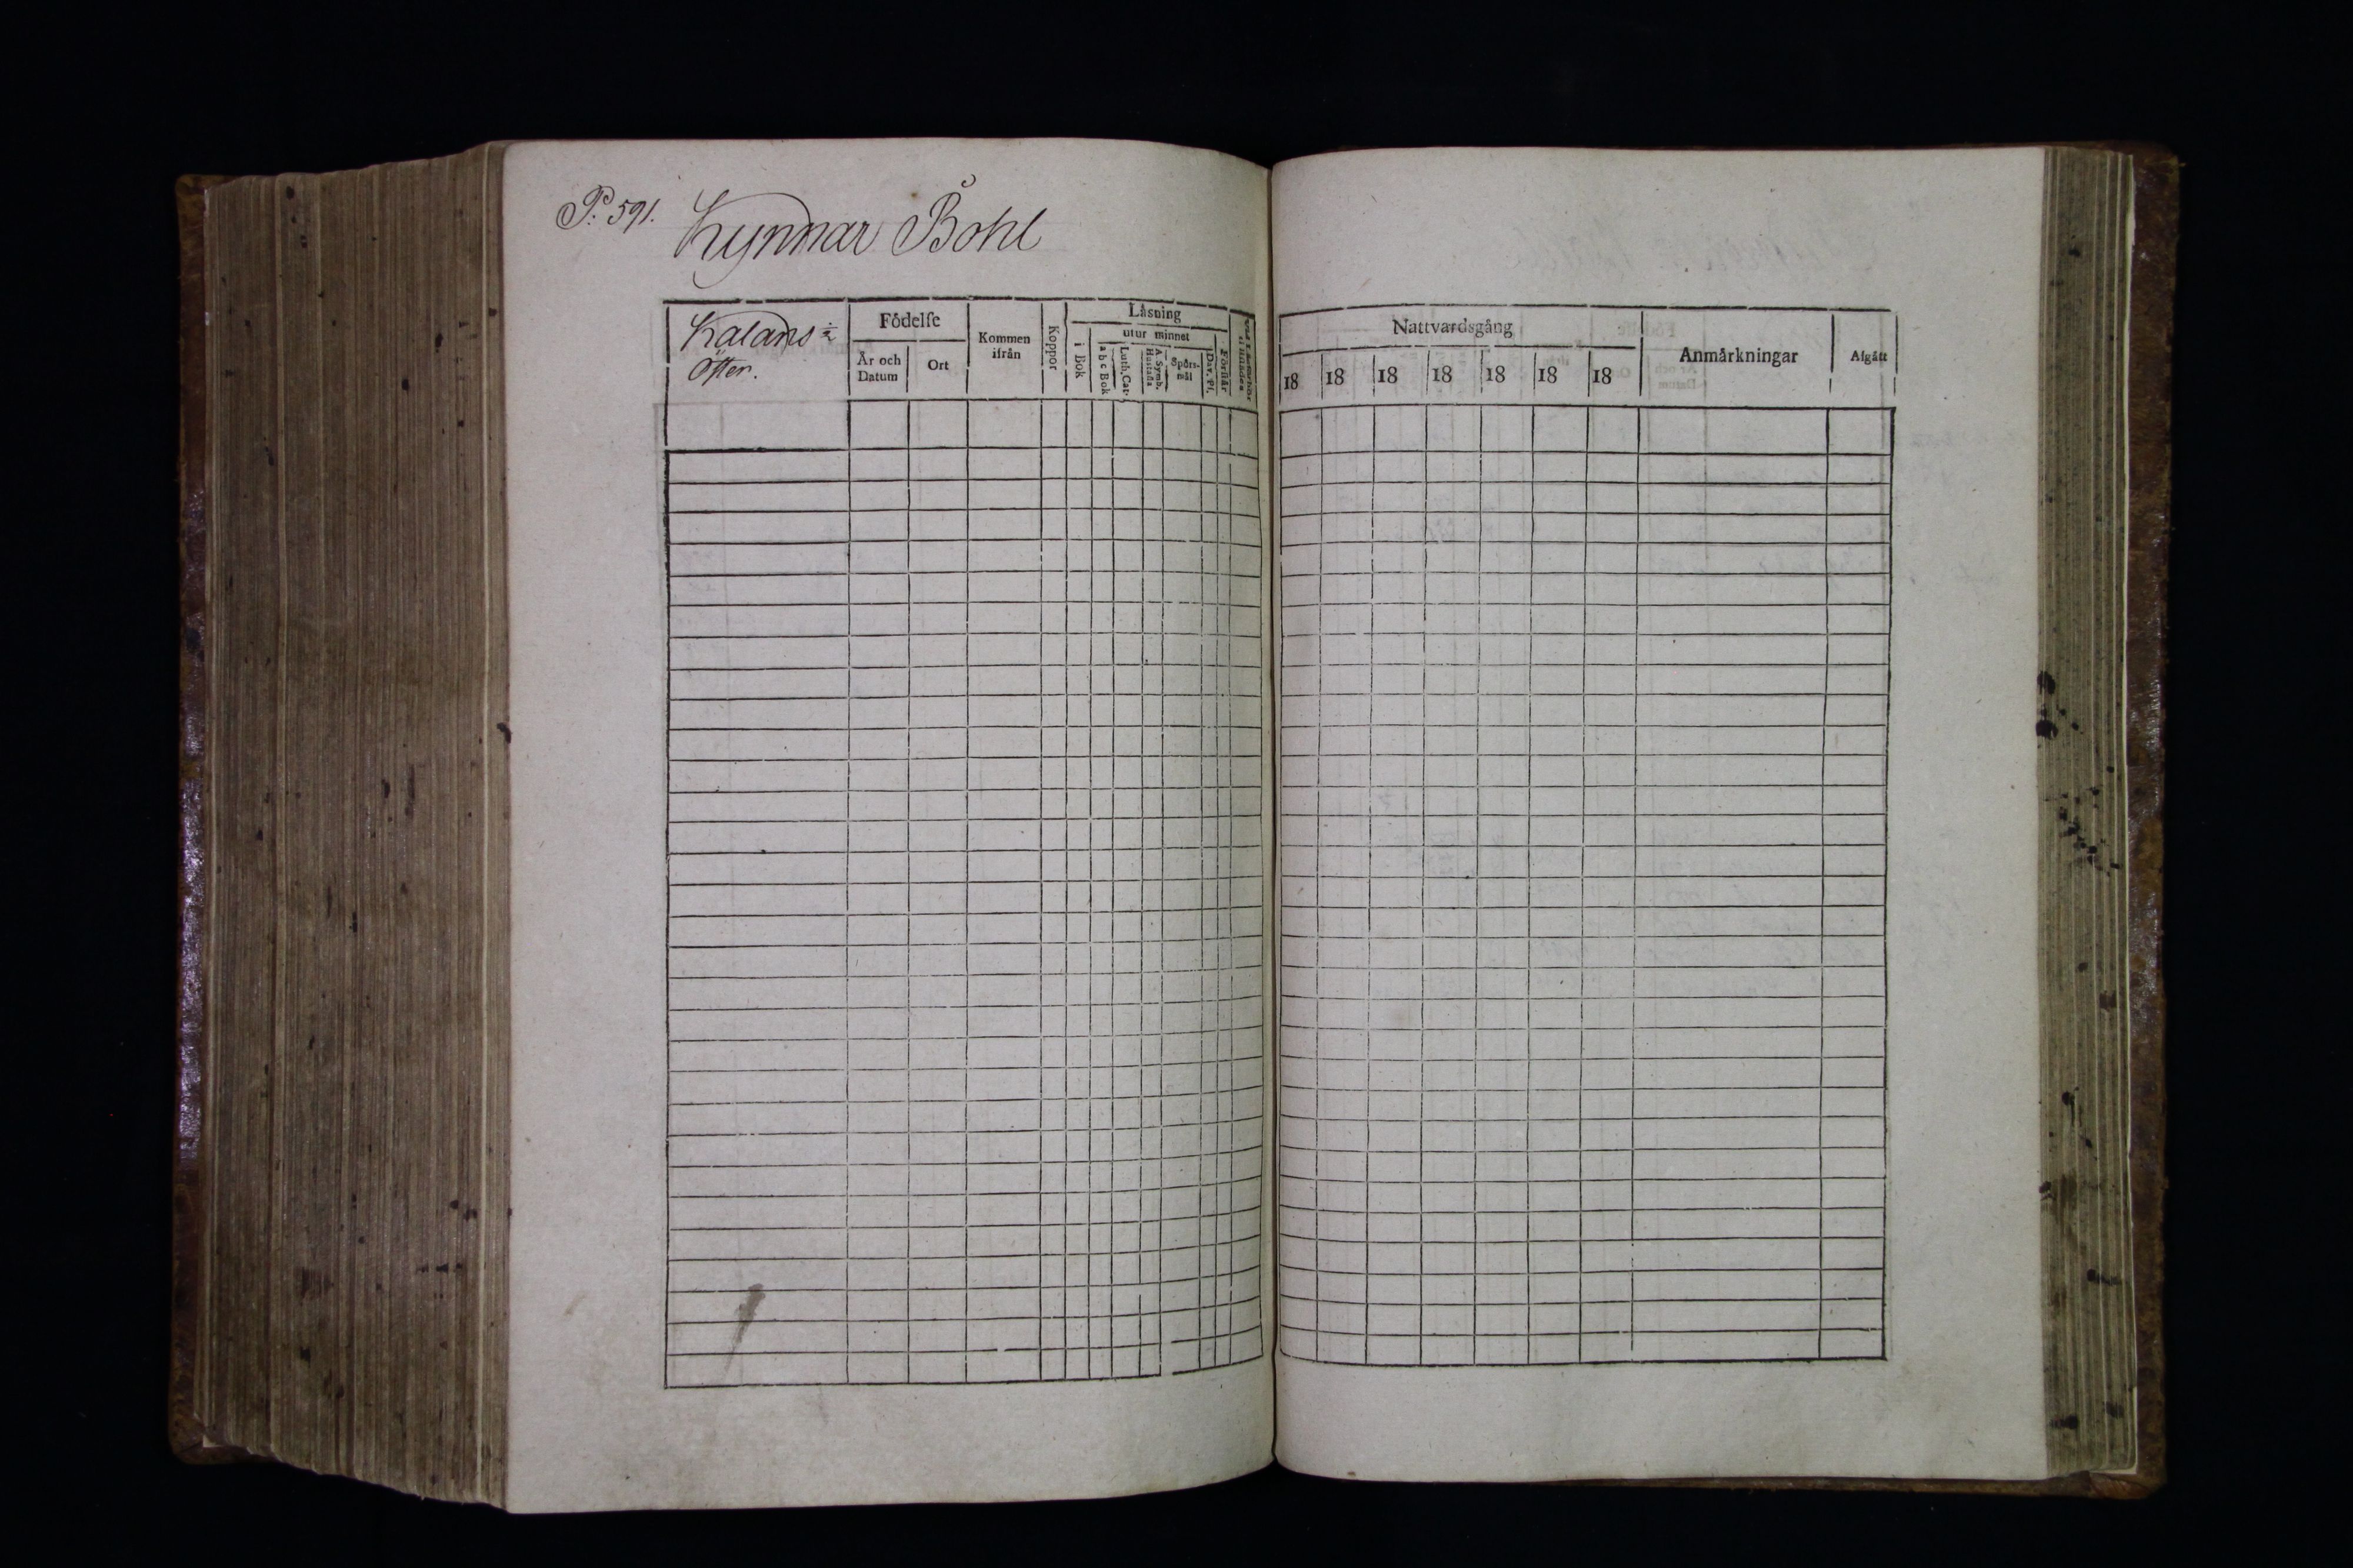 P. 591. Kynnar Bohl
Kalans-
Öster.
Födelse
År och Datum
Ort
Kommen ifrån
Koppor
Läsning
i Bok
utur minnet
a b c Bok
Luth. Cat.
A. Symb.
Hustafla
Spörs-
mål
Dav. Ps.
Förstår
Nattvardsgång
18 18 18 18 18 18 18
Anmärkningar
Afgått